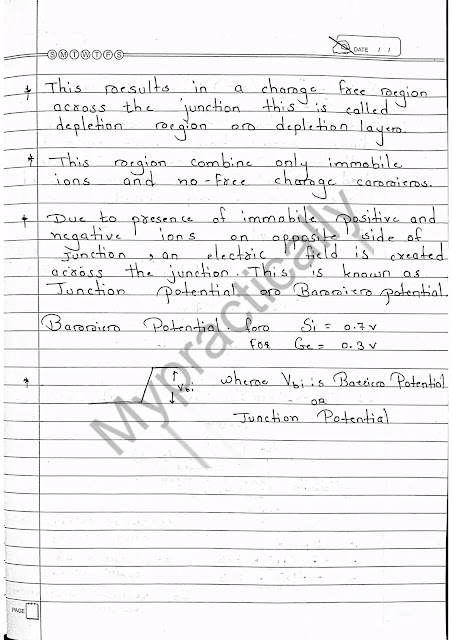 S M T W T F S
DATE / /
* This results in a charge free region
across the junction this is called
depletion region or depletion layer.
* This region combine only immobile
ions and no-free charge carriers.
* Due to presence of immobile positive and
negative ions on opposite side of
Junction, an electric field is created
across the junction. This is known as
Junction potential or Barrier potential.
Barrier Potential for Si = 0.7 v
For Ge = 0.3 v
* Vbi where Vbi is Barrier Potential
OR
Junction Potential
Mypractically
PAGE